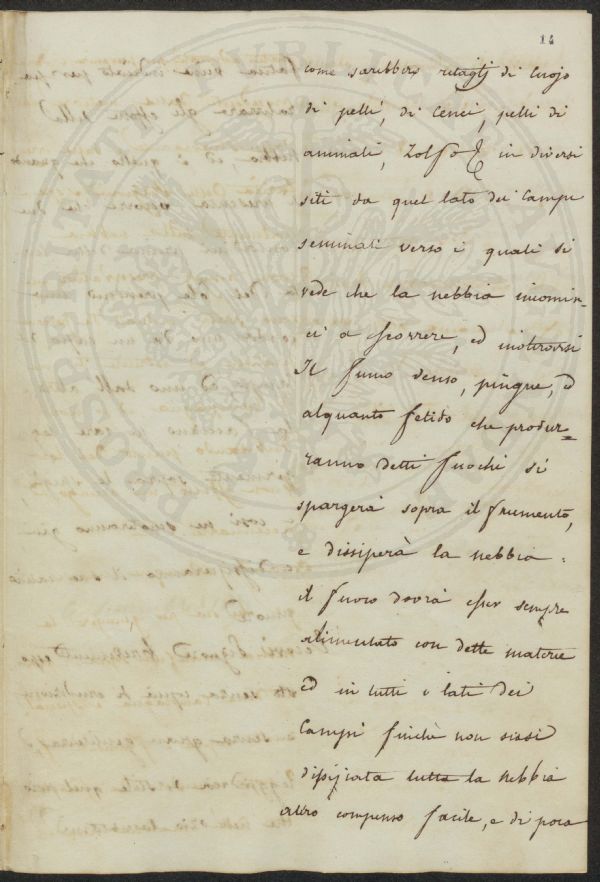 14
come sarebbero ritaglj di Cuojo
di pelli, di Cenci, pelli di
animali, Zolfo & in diversi
siti da quel lato dei Campi
seminati verso i quali si
vede che la nebbia incomin-
ci a scorrere, ed inoltrarsi
Il fumo denso, pingue, e
alquanto fetido che produr=
ranno detti fuochi si
spargerà sopra il frumento,
e dissiperà la nebbia.
il fuoco dovrà esser sempre
alimentato con dette materie
ed in tutti i lati dei
Campi finchè non siasi
dissipata tutta la nebbia
altro compenso facile, e di poca
PROSPERITATI PUBLICAE